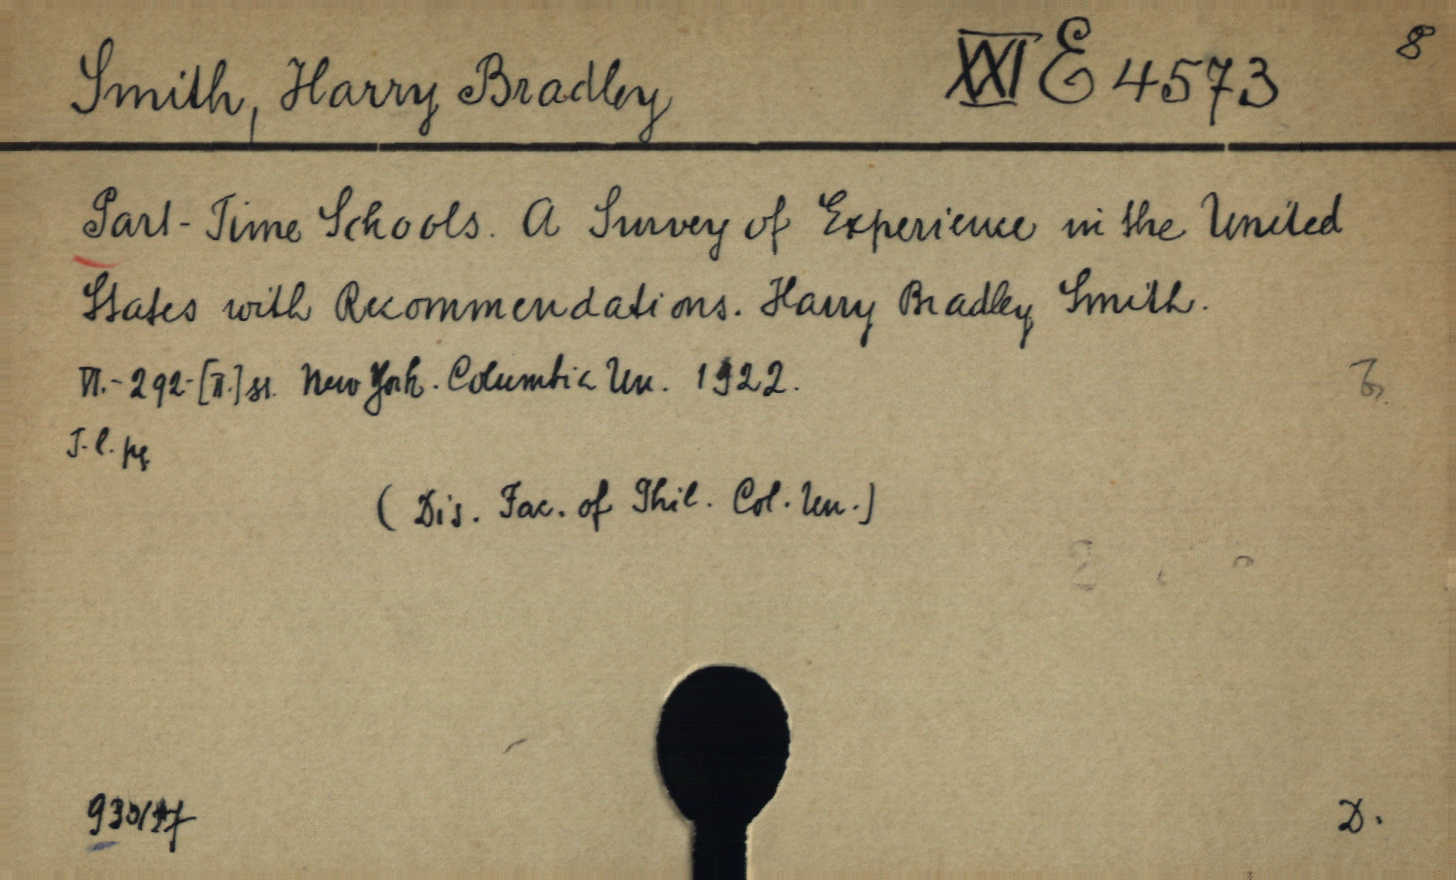 Smith, Harry Bradley XXI E 4573 8
Part-Time Schools. A Survey of Experience in the United
States with Recommendations. Harry Bradley Smith.
VI.-292-[II.] st. New York. Columbia Un. 1922.
(Dis. Fac. of Phil. Col. Un.)
D.